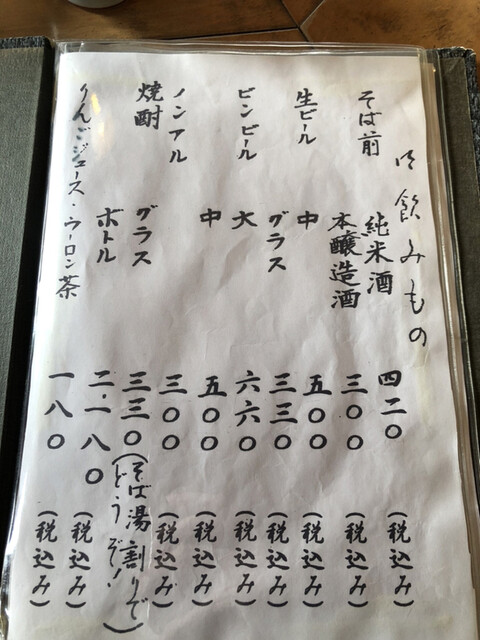 御飲みもの
そば前 純米酒 四二〇 (税込み)
本醸造酒 三〇〇 (税込み)
生ビール 中 五〇〇 (税込み)
グラス 三三〇 (税込み)
ビンビール 大 六六〇 (税込み)
中 五〇〇 (税込み)
ノンアル 三〇〇 (税込み)
焼酎 グラス 三三〇 (そば湯割りで
どうぞ!)
ボトル 二・一八〇 (税込み)
りんごジュース・ウーロン茶 一八〇 (税込み)